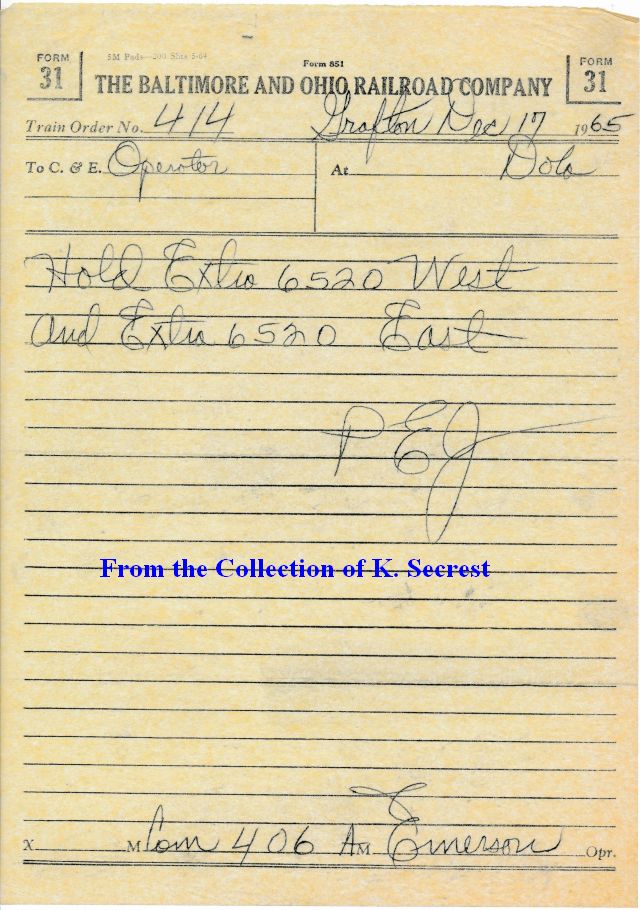 FORM 31
5M Pads—200 Shts 5-64
Form 851
FORM 31
THE BALTIMORE AND OHIO RAILROAD COMPANY
Train Order No. 414 Grafton Dec 17 1965
To C. & E. Operator At Dola
Hold Extra 6520 West
And Extra 6520 East
PEJ
From the Collection of K. Secrest
X M Com 406 AM Emerson Opr.